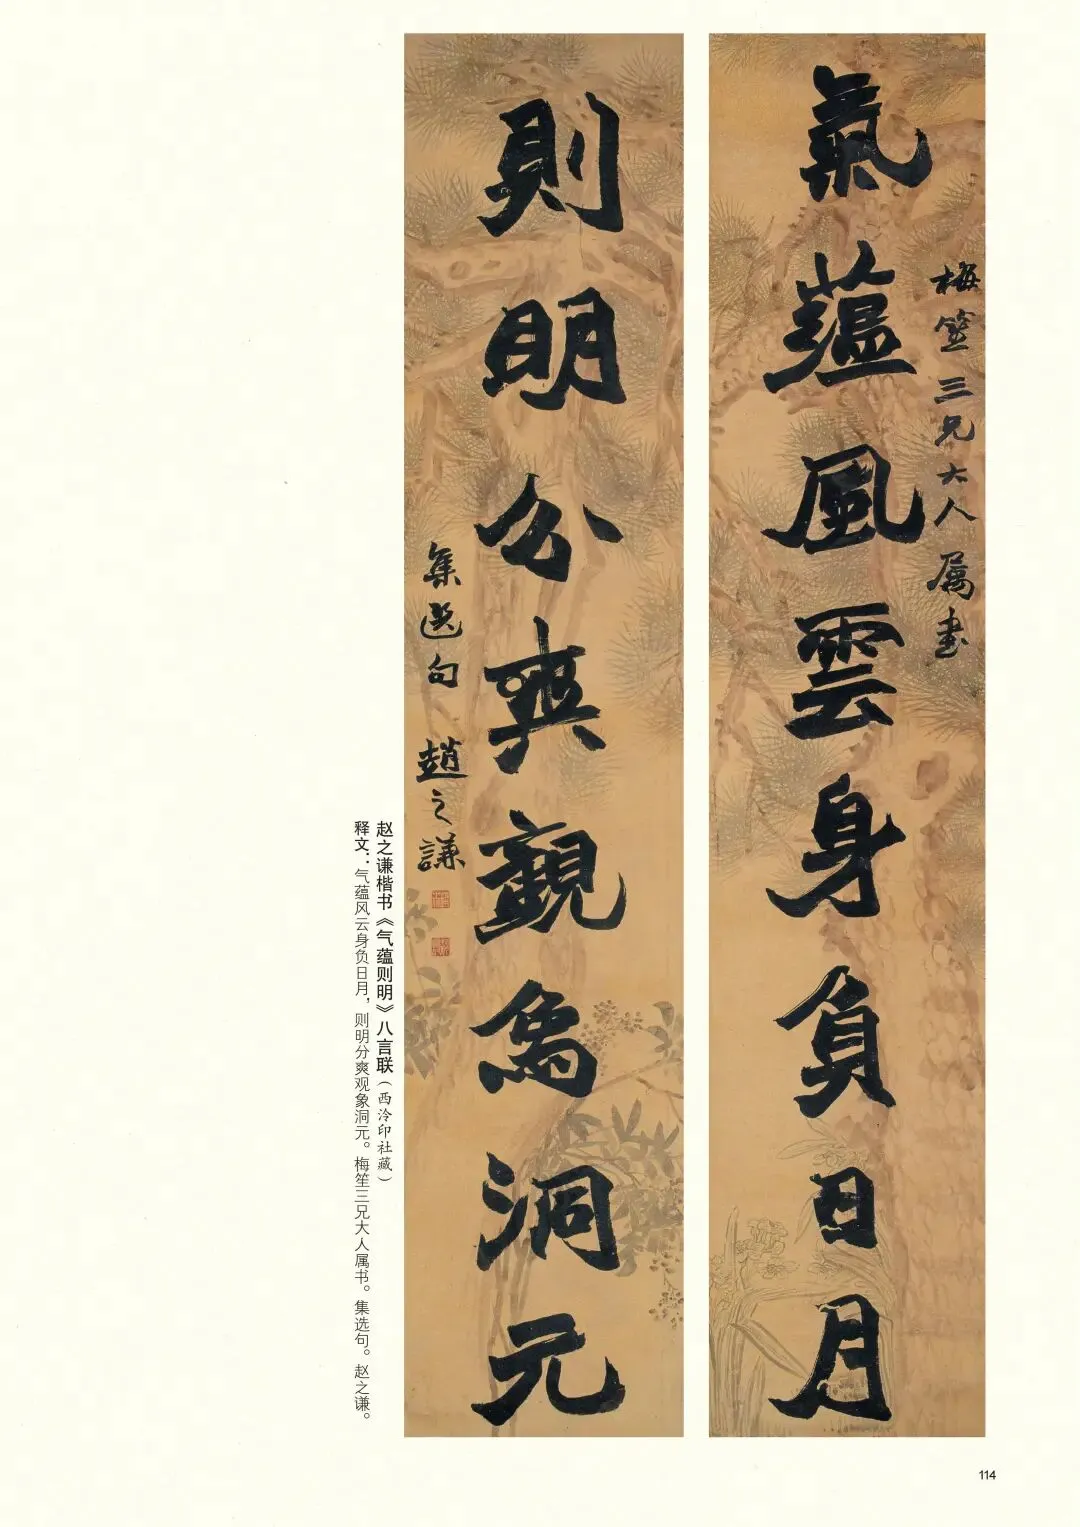 梅笙三兄大人属書
氣藴風雲身負日月
則明分爽觀象洞元
集選句 趙之謙
赵之谦楷书《气蕴则明》八言联(西泠印社藏)
释文:气蕴风云身负日月,则明分爽观象洞元。梅笙三兄大人属书。集选句。赵之谦。
114